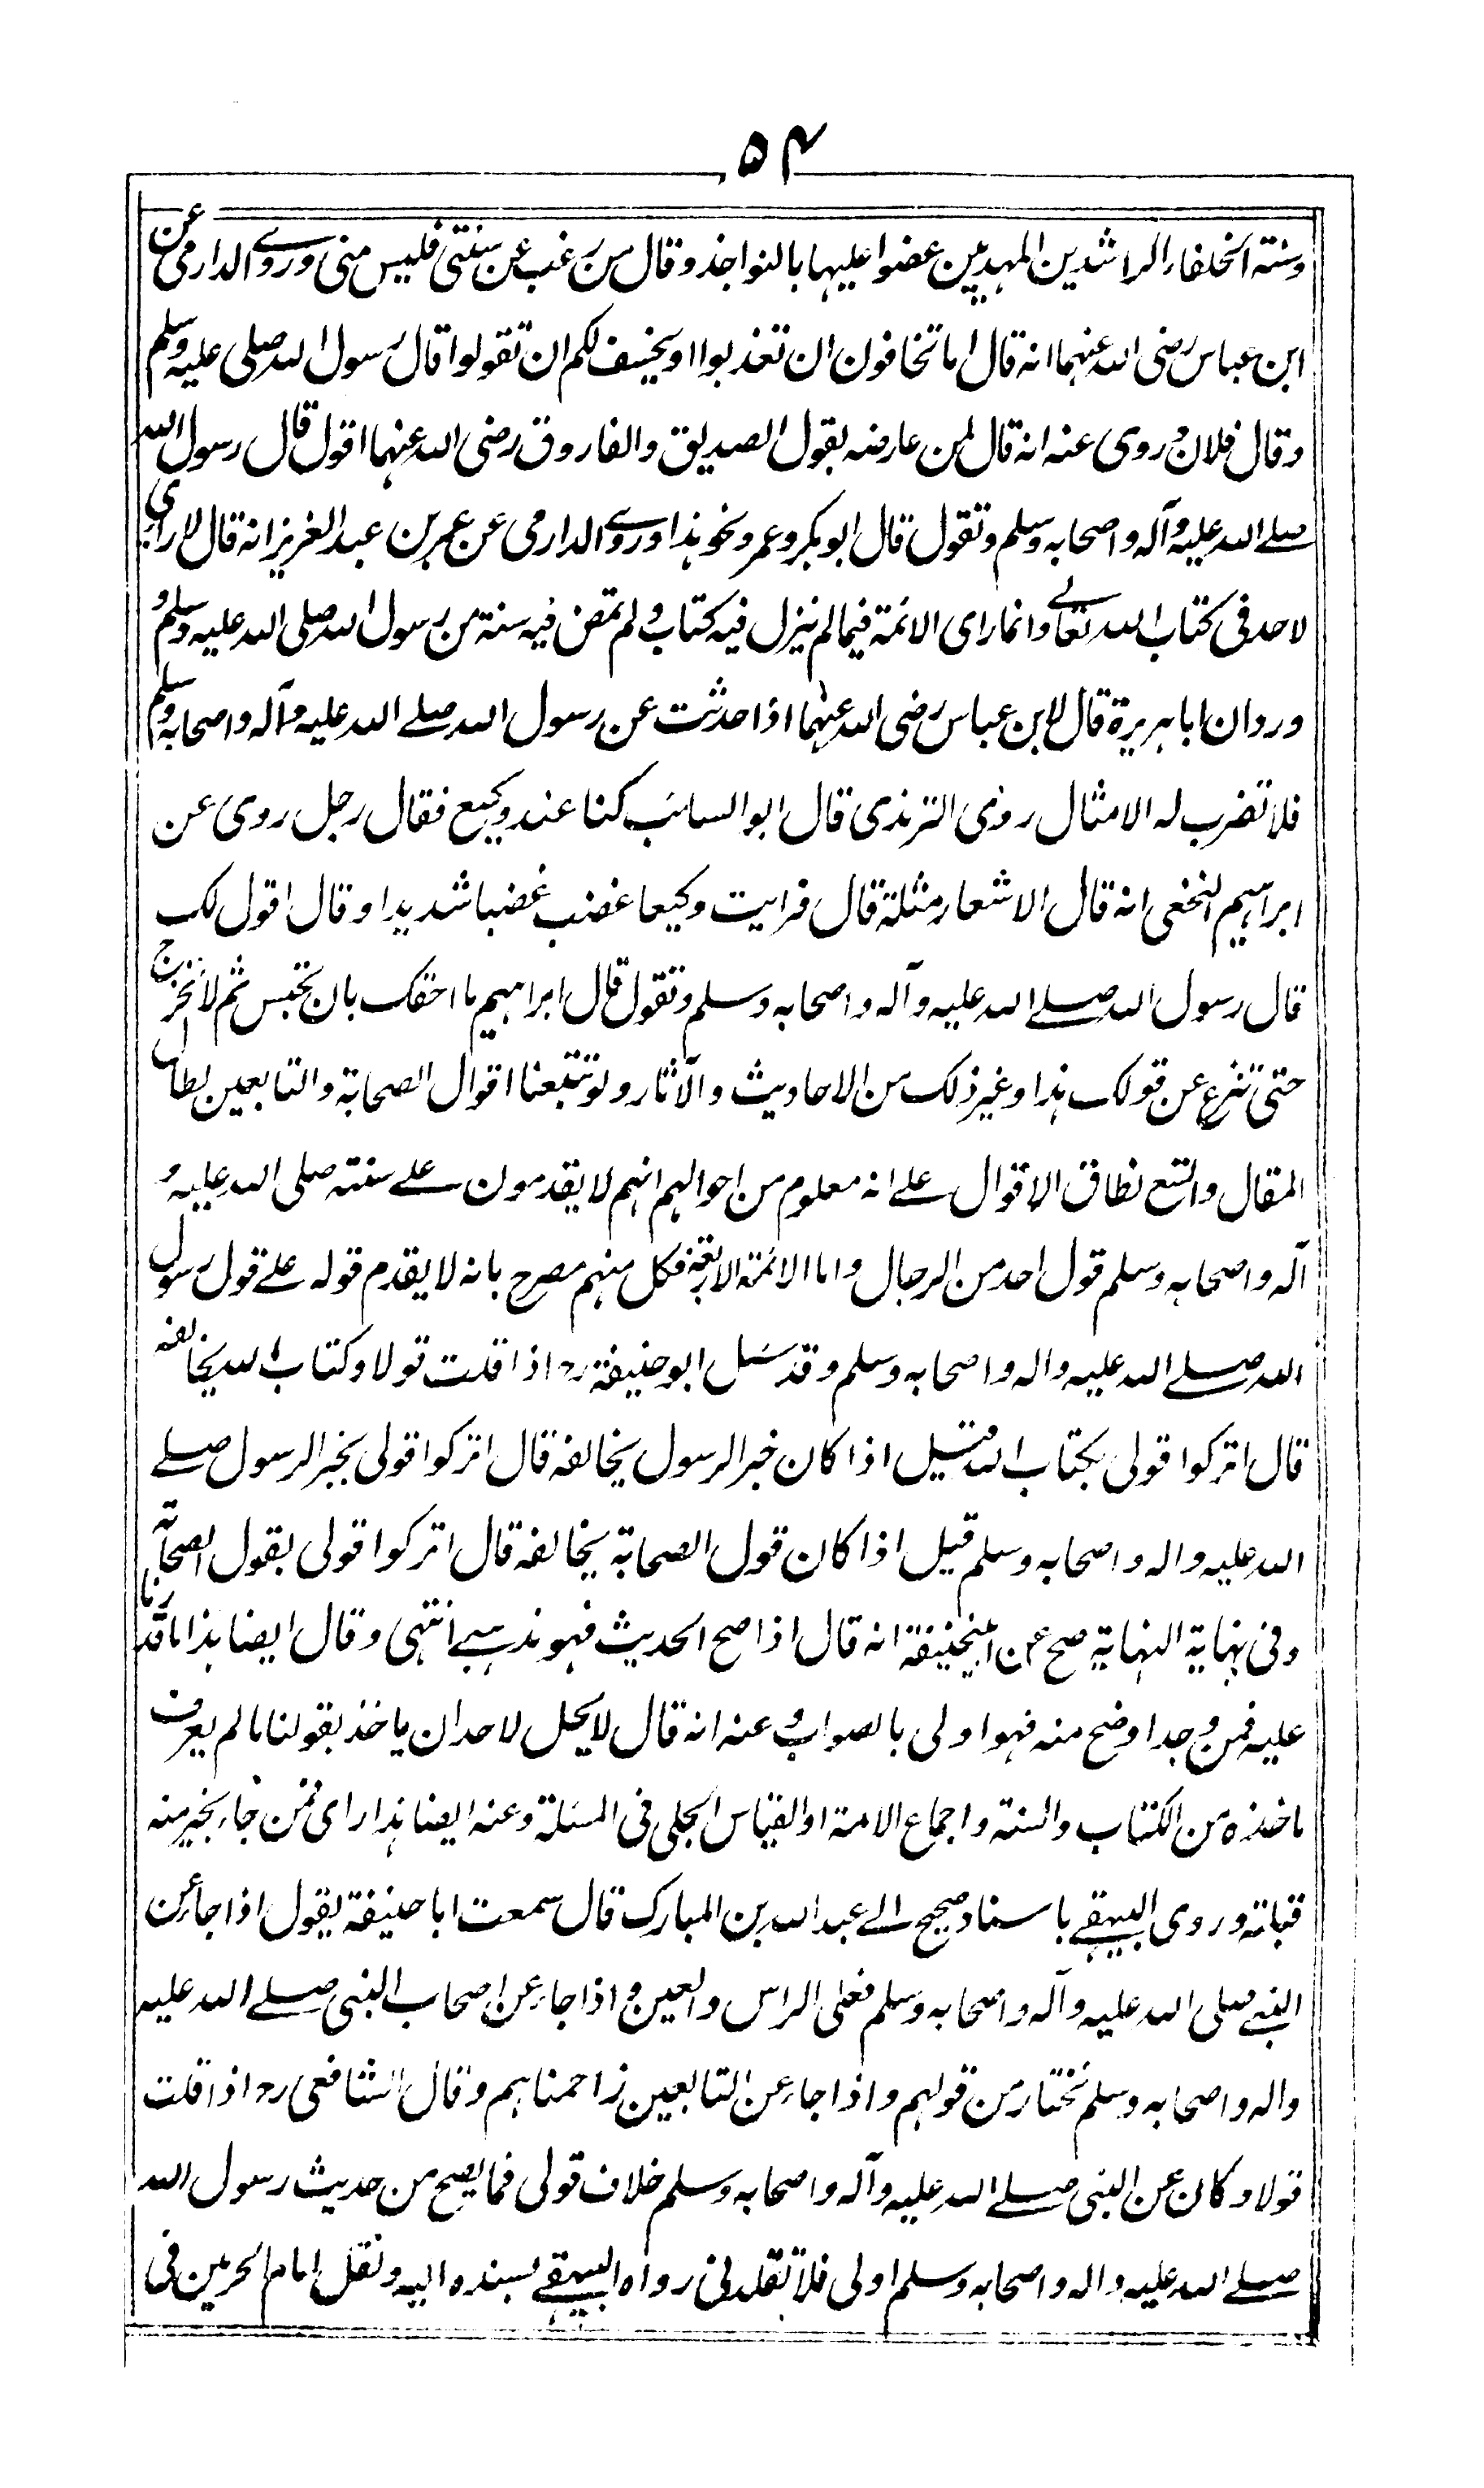 ۵۴
وسنة الخلفاء الراشدين المهديين عضوا عليها بالنواجذ وقال من رغب عن سنتي فليس مني وروى الدارمي عن
ابن عباس رضي الله عنهما انه قال اما تخافون ان تعذبوا او يخسف لكم ان تقولوا قال رسول الله صلى عليه وسلم
وقال فلان وروى عنه انه قال لمن عارضه بقول الصديق والفاروق رضي الله عنهما اقول قال رسول الله
صلے الله عليه وآله واصحابه وسلم وتقول قال ابو بكر وعمر ونحو هذا وروى الدارمي عن عمر بن عبد العزيز انه قال لا راى
لاحد في كتاب الله تعالے وانما راى الائمة فيما لم ينزل فيه كتاب ولم تمض فيه سنة من رسول الله صلى الله عليه وسلم و
ورد ان ابا هريرة قال لابن عباس رضي الله عنهما اذا حدثت عن رسول الله صلے الله عليه وآله واصحابه وسلم
فلا تضرب له الامثال روى الترمذي قال ابو السائب كنا عند وكيع فقال رجل روى عن
ابراهيم النخعي انه قال الاشعار مثلة قال فرايت وكيعا غضب غضبا شديدا وقال اقول لك
قال رسول الله صلے الله عليه وآله واصحابه وسلم وتقول قال ابراهيم ما احقك بان تحبس ثم لا تخرج
حتى تنزع عن قولك هذا وغير ذلك من الاحاديث والآثار ولو تتبعنا اقوال الصحابة والتابعين لطال
المقال واتسع نطاق الاقوال علے انه معلوم من احوالهم انهم لا يقدمون علے سنته صلى الله عليه و
آله واصحابه وسلم قول احد من الرجال واما الائمة الاربعة فكل منهم مصرح بانه لا يقدم قوله علے قول رسول
الله صلے الله عليه واله واصحابه وسلم وقد سئل ابو حنيفة رح اذا قلت قولا وكتاب الله يخالفه
قال اتركوا قولي بكتاب الله قيل اذا كان خبر الرسول يخالفه قال اتركوا قولي بخبر الرسول صلے
الله عليه واله واصحابه وسلم قيل اذا كان قول الصحابة يخالفه قال اتركوا قولي بقول الصحابة
وفي نهاية النهاية صح عن ابيحنيفة انه قال اذا صح الحديث فهو مذهبے انتهى وقال ايضا هذا ما قدرنا
عليه فمن وجد اوضح منه فهو اولى بالصواب وعنه انه قال لا يحل لاحد ان ياخذ بقولنا ما لم يعرف
ماخذه من الكتاب والسنة واجماع الامة او القياس الجلي في المسئلة وعنه ايضا هذا راى فمن جاء بخير منه
قبلته وروى البيهقے باسناد صحيح الے عبد الله بن المبارك قال سمعت ابا حنيفة يقول اذا جاء عن
النبے صلى الله عليه وآله واصحابه وسلم فعلى الراس والعين واذا جاء عن اصحاب النبي صلے الله عليه
واله واصحابه وسلم نختار من قولهم واذا جاء عن التابعين زاحمناهم وقال الشافعي رح اذا قلت
قولا وكان عن النبي صلے الله عليه وآله واصحابه وسلم خلاف قولي فما يصح من حديث رسول الله
صلے الله عليه واله واصحابه وسلم اولى فلا تقلدني رواه البيهقے بسنده اليه ونقل امام الحرمين في